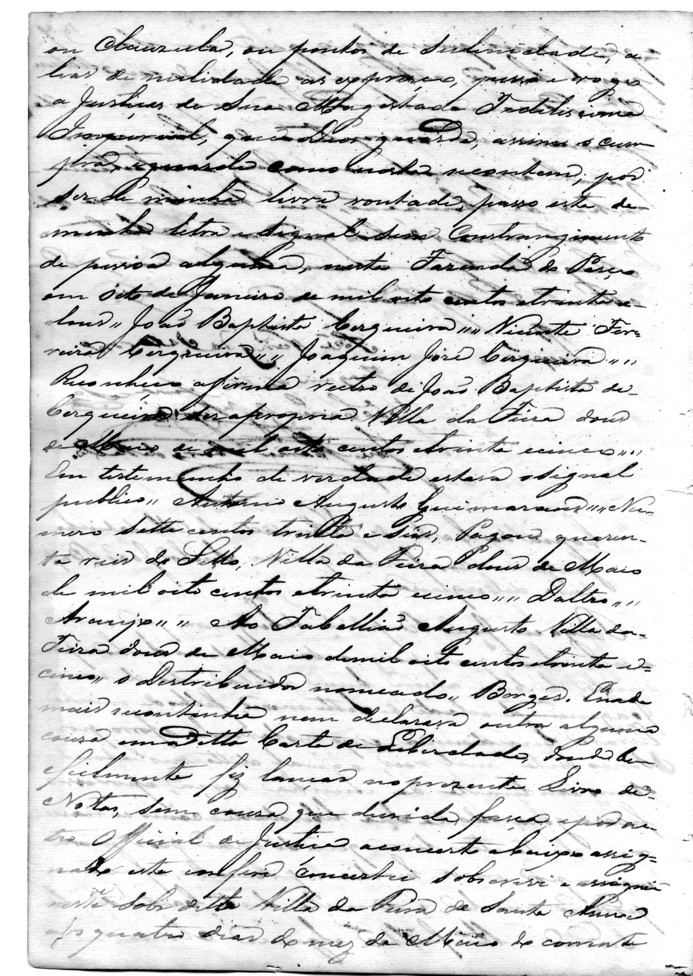 ou Clauzula, ou pontos de Solenidade, a
hei de nelidade as expreço, peço e rogo
a Justiças de Sua Magestade Fedelissima
Imperial, que Deos guarde, assim o cum
prão, e guarde como nesta se contem, por
ser de minha livre vontade, passo esta de
minha letra e Signal sem Constrangimento
de pessoa alguma, nesta Fazenda do
em oito de Janeiro de mil oito centos etrinta e-
dous,, João Baptista Cerqueira,,,, Vicente Fer-
reira Cerqueira,,,, Joaquim José Cerqueira,,,,
Reconheço afirma retro de João Baptista de-
Cerqueira ser apropria Villa da Feira dous
de Maio de mil oito centos etrinta ecinco,,,,
Em testemunho de verdade estava osignal
publico,, Antonio Augusto Guimaraens,,,, Nu-
mero Sette centos trinta e Pagou quaren-
ta reis de Sello, Villa da Feira dous de Maio
de mil oito centos etrinta ecinco,,,, Daltro,,,,
Araujo,,,, Ao Tabellião Augusto Villa da-
Feira dous de Maio demil oito centos etrinta e-
cinco,, o Destribuidor nomeado,, Borges. Enada
mais secontinha nem declarava outra alguma
couza em aditta Carta de Liberdade,
efielmente fiz lançar noprezente Livro de-
Nottas, sem couza que duvida faça,
tro Official de Justica aconcerto abaixo assig-
nado este conferi concertei sobscrevi e assignei
nesta sobre ditta Villa da Feira de Santa Anna
aos quatro dias do mez de Maio do corrente